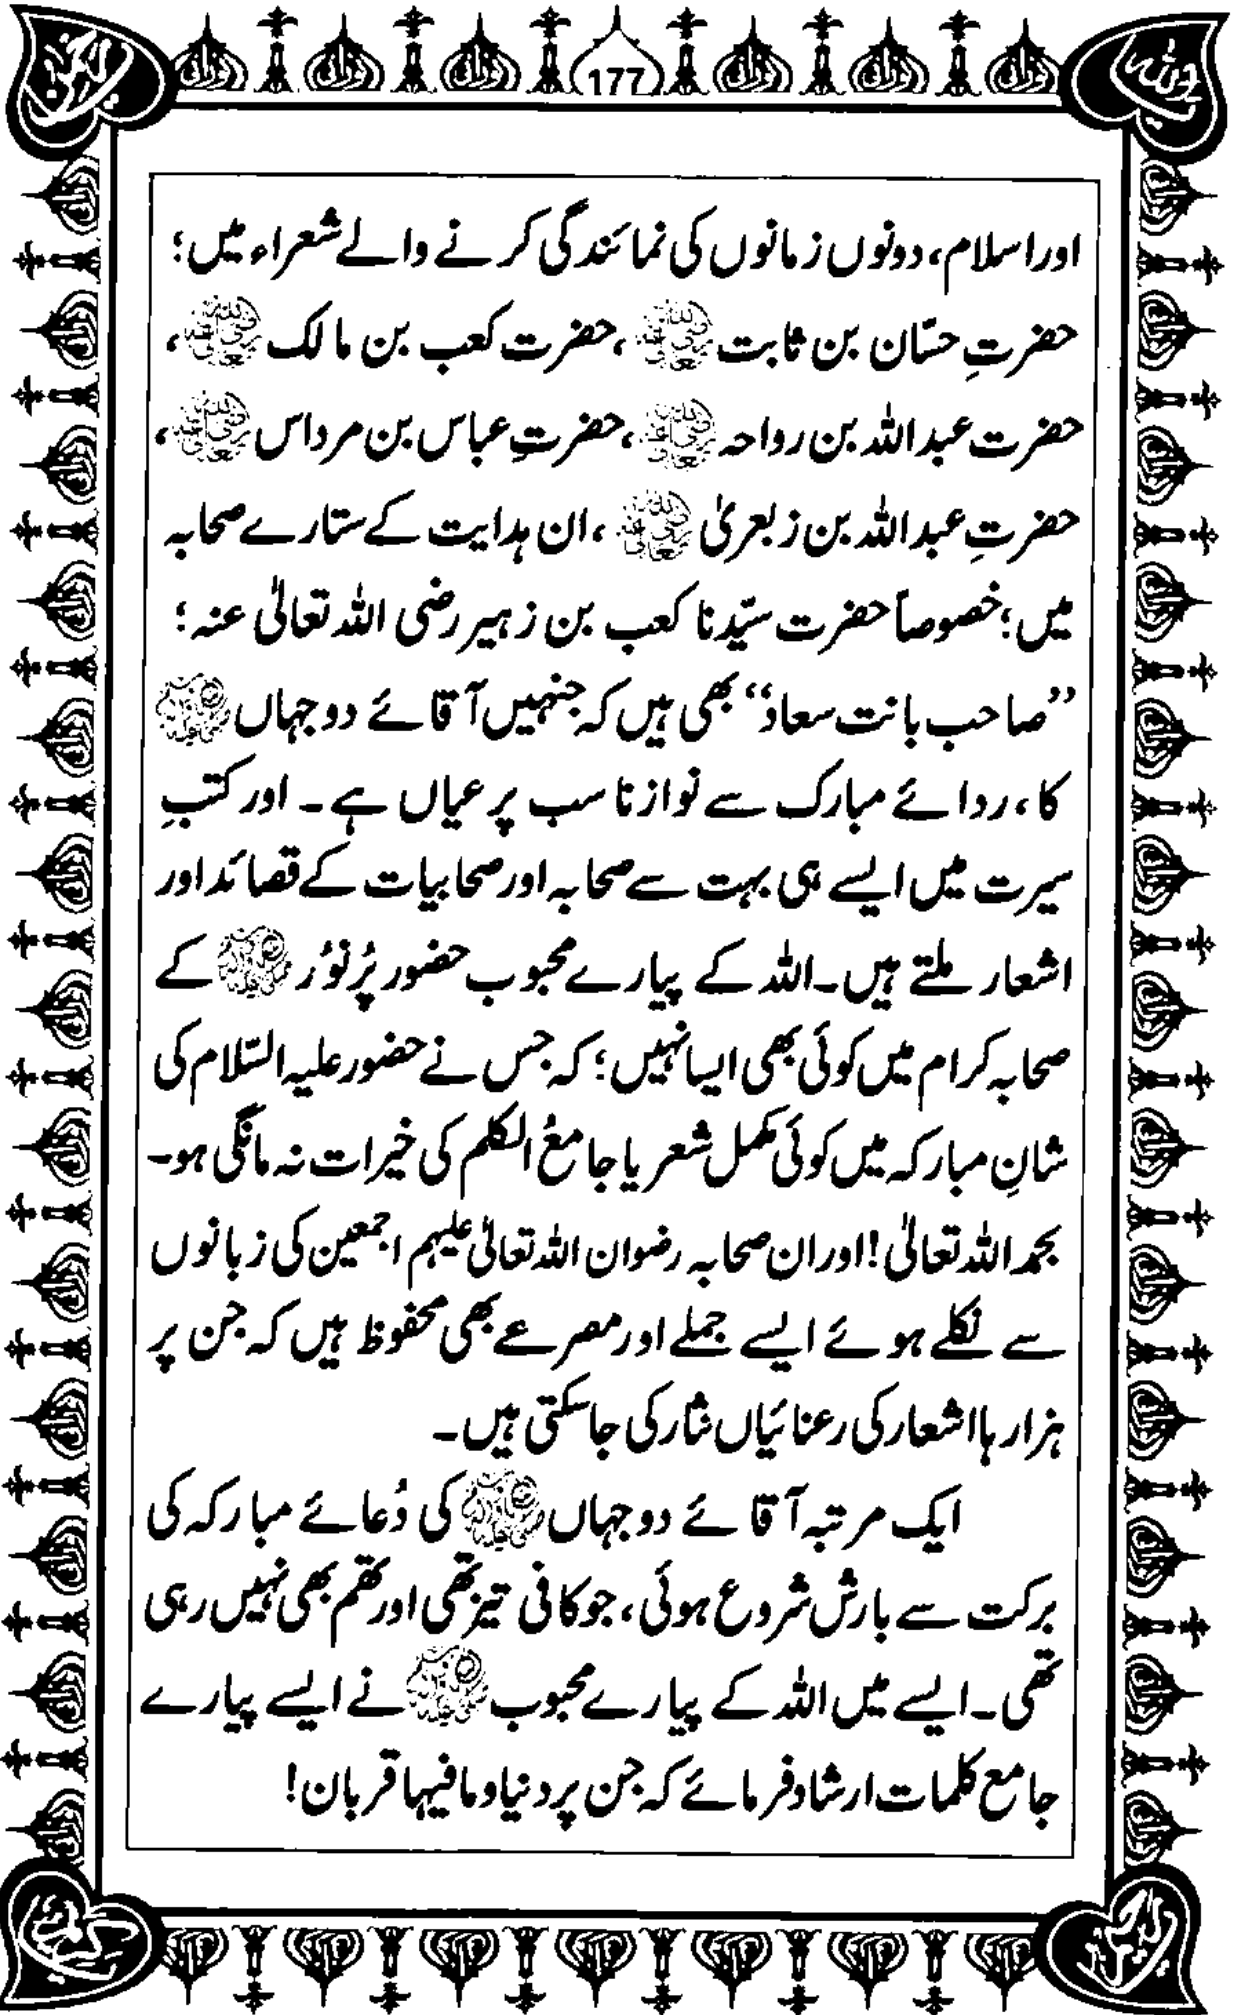 177
اور اسلام، دونوں زمانوں کی نمائندگی کرنے والے شعراء میں؛
حضرتِ حسّان بن ثابت رضی اللہ تعالیٰ عنہ، حضرت کعب بن مالک رضی اللہ تعالیٰ عنہ،
حضرت عبد اللہ بن رواحہ رضی اللہ تعالیٰ عنہ، حضرتِ عباس بن مرداس رضی اللہ تعالیٰ عنہ،
حضرتِ عبد اللہ بن زبعریٰ رضی اللہ تعالیٰ عنہ، ان ہدایت کے ستارے صحابہ
میں؛ خصوصاً حضرت سیّدنا کعب بن زہیر رضی اللہ تعالیٰ عنہ؛
”صاحب بانت سعاد“ بھی ہیں کہ جنہیں آقائے دو جہاں ﷺ
کا، ردائے مبارک سے نوازنا سب پر عیاں ہے۔ اور کتبِ
سیرت میں ایسے ہی بہت سے صحابہ اور صحابیات کے قصائد اور
اشعار ملتے ہیں۔ اللہ کے پیارے محبوب حضور پُرنُور ﷺ کے
صحابہ کرام میں کوئی بھی ایسا نہیں؛ کہ جس نے حضور علیہ السّلام کی
شانِ مبارکہ میں کوئی مکمل شعر یا جامعُ الکلم کی خیرات نہ مانگی ہو۔
بحمد اللہ تعالیٰ! اور ان صحابہ رضوان اللہ تعالیٰ علیہم اجمعین کی زبانوں
سے نکلے ہوئے ایسے جملے اور مصرعے بھی محفوظ ہیں کہ جن پر
ہزارہا اشعار کی رعنائیاں نثار کی جاسکتی ہیں۔
ایک مرتبہ آقائے دو جہاں ﷺ کی دُعائے مبارکہ کی
برکت سے بارش شروع ہوئی، جو کافی تیز تھی اور تھم بھی نہیں رہی
تھی۔ ایسے میں اللہ کے پیارے محبوب ﷺ نے ایسے پیارے
جامع کلمات ارشاد فرمائے کہ جن پر دنیا و مافیہا قربان!